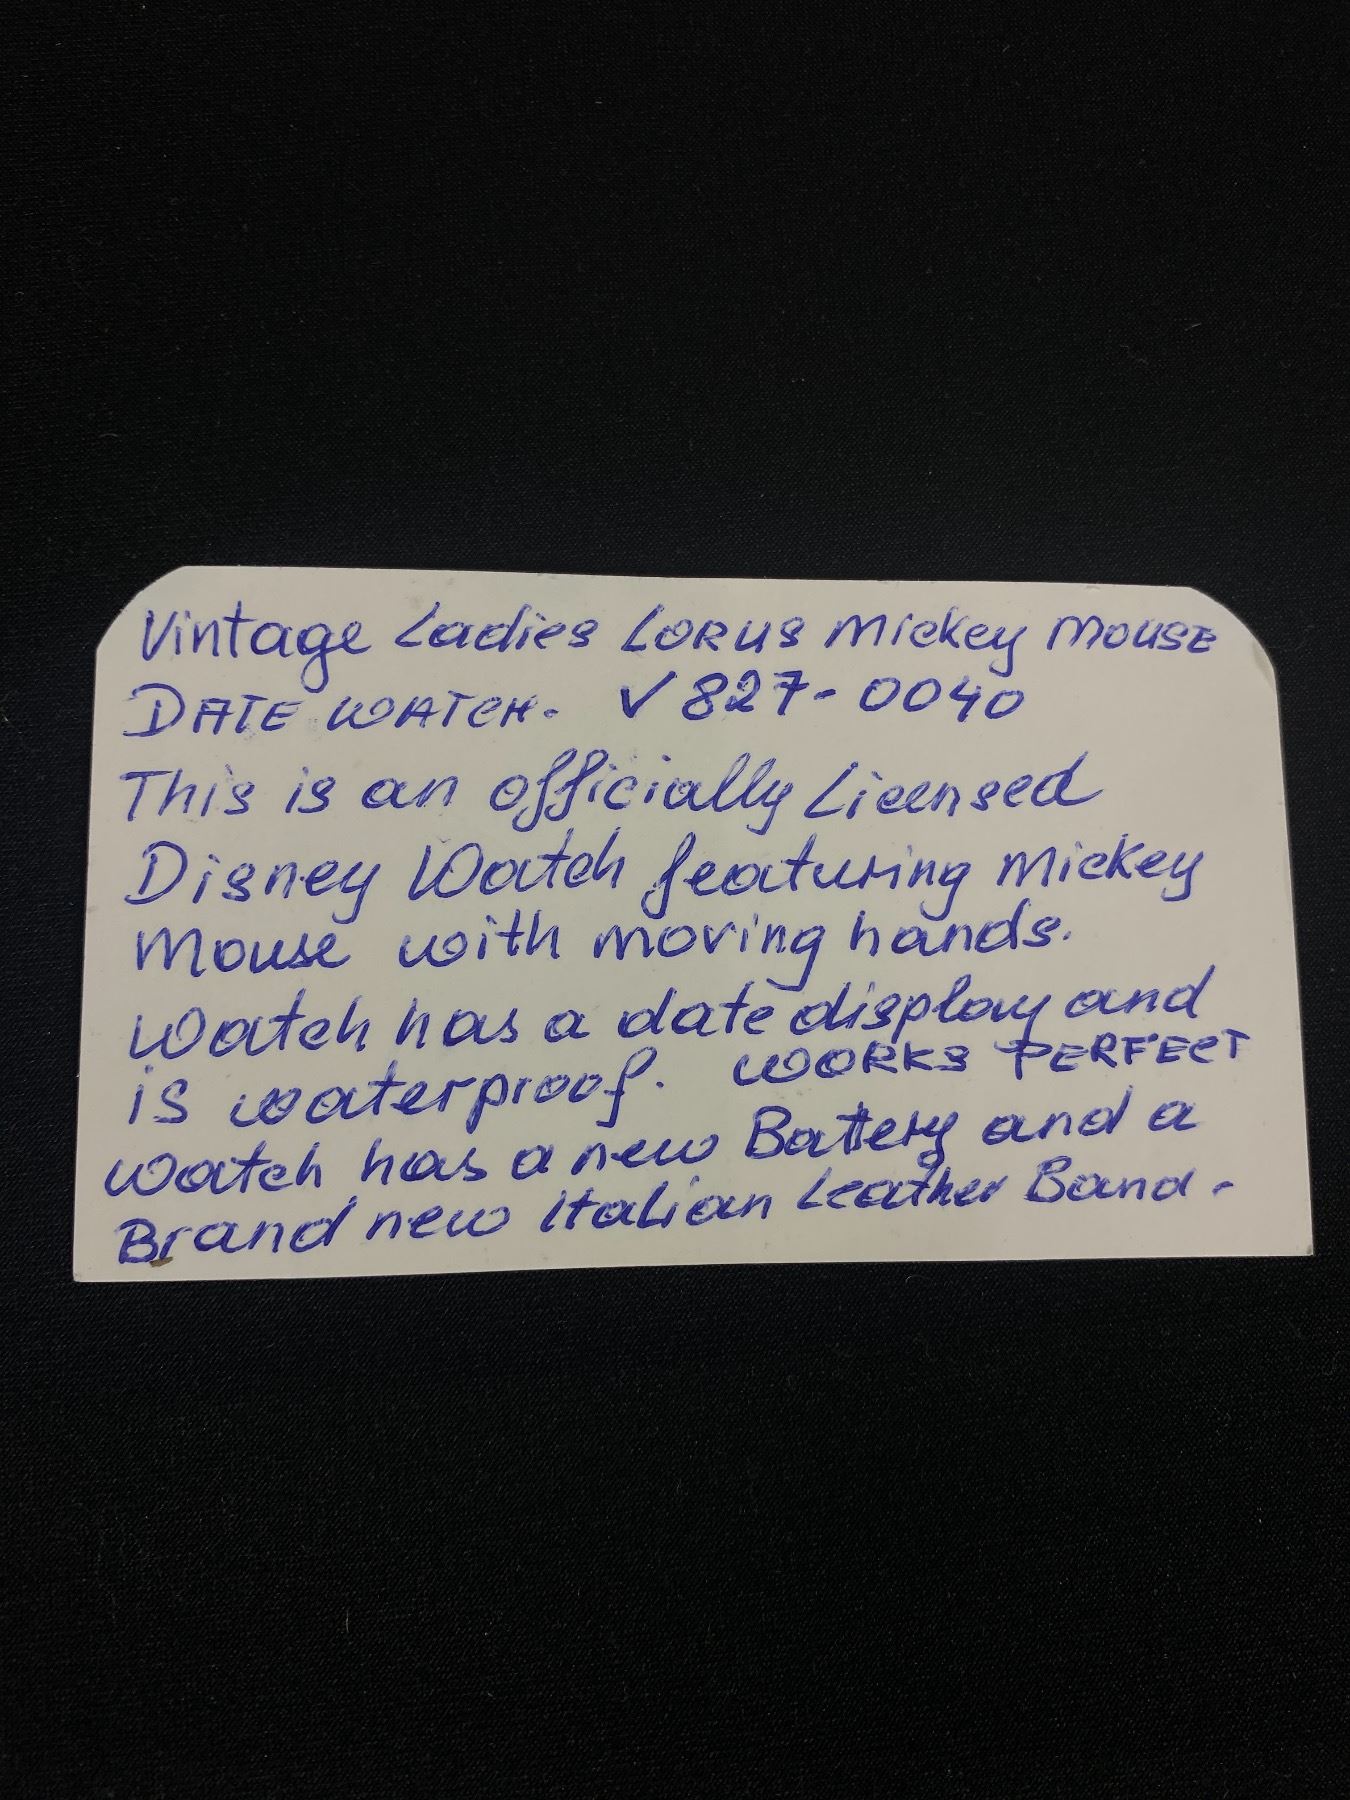 Vintage Ladies LORUS Mickey MOUSE
DATE WATCH. V827-0040
This is an officially Licensed
Disney Watch featuring Mickey
Mouse with moving hands.
Watch has a date display and
is waterproof. WORKS PERFECT
Watch has a new Battery and a
Brand new Italian Leather Band.